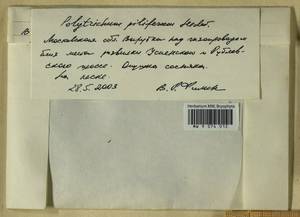 Polytrichum piliferum Hedw.
Московская обл. Вырубка над газопроводом
близ места развилки Успенского и Рублев-
ского шоссе. Опушка сосняка.
На песке.
28.5.2003
Herbarium MW, Bryophyta
MW 9 074 012